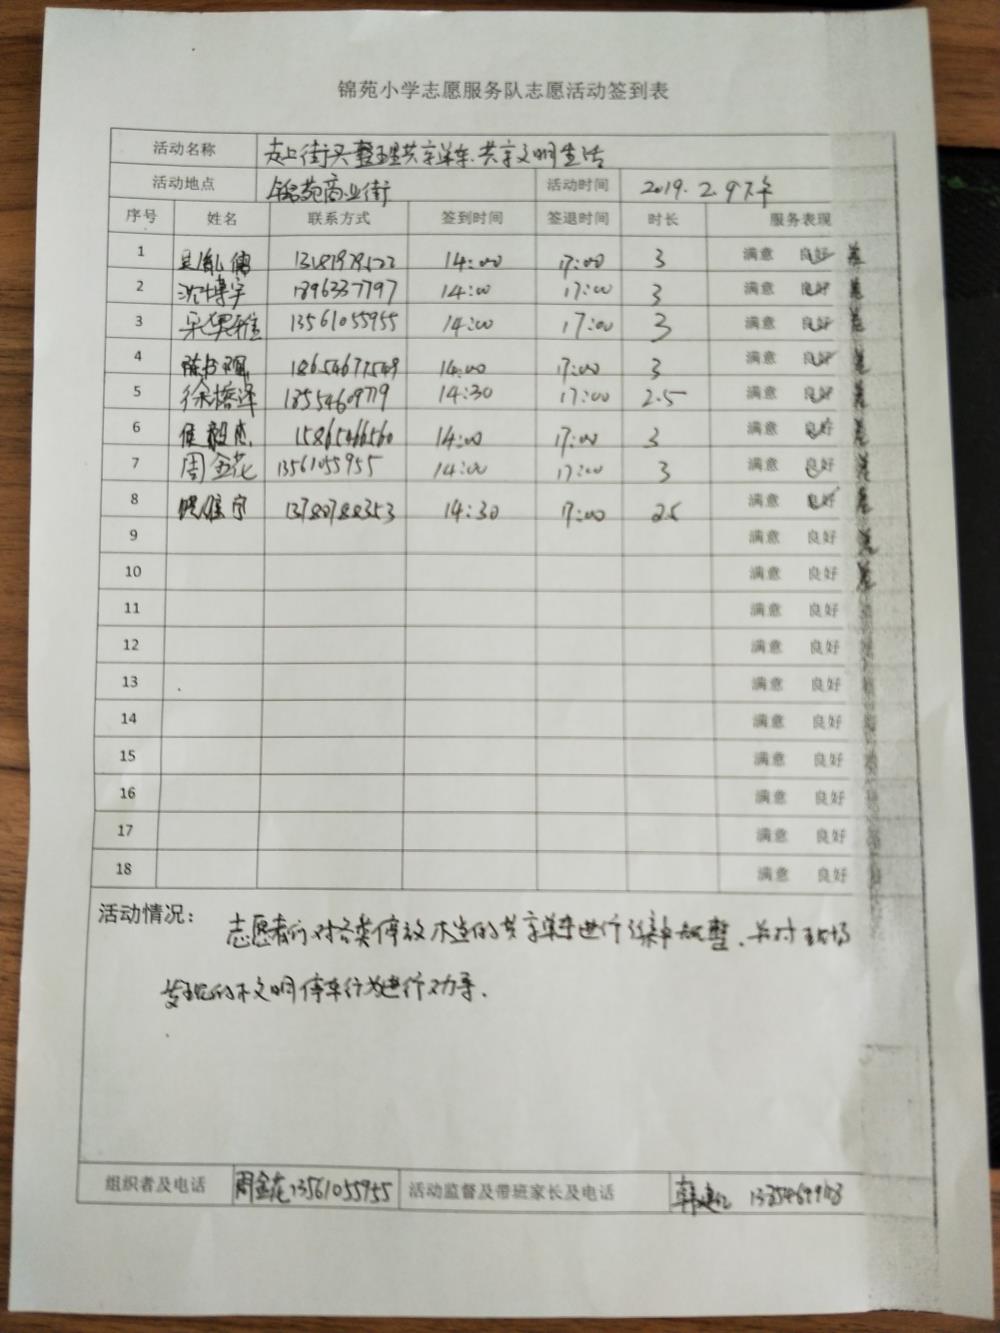 锦苑小学志愿服务队志愿活动签到表
活动名称 走上街头整理共享单车.共享文明生活
活动地点 锦苑商业街 活动时间 2019.2.9下午
序号 姓名 联系方式 签到时间 签退时间 时长 服务表现
1 14:00 17:00 3 满意 良好 差
2 沈博宇 14:00 17:00 3 满意 良好 差
3 13561055955 14:00 17:00 3 满意 良好 差
4 18654677549 14:00 17:00 3 满意 良好 差
5 徐榕泽 14:30 17:00 2.5 满意 良好 差
6 15865466560 14:00 17:00 3 满意 良好 差
7 周金花 13561055955 14:00 17:00 3 满意 良好 差
8 13780788353 14:30 17:00 2.5 满意 良好 差
9 满意 良好 差
10 满意 良好 差
11 满意 良好
12 满意 良好
13 满意 良好
14 满意 良好
15 满意 良好
16 满意 良好
17 满意 良好
18 满意 良好
活动情况：志愿者们对各类停放不当的共享单车进行 整.并对现场
发现的不文明停车行为进行劝导.
组织者及电话 周金花13561055955 活动监督及带班家长及电话